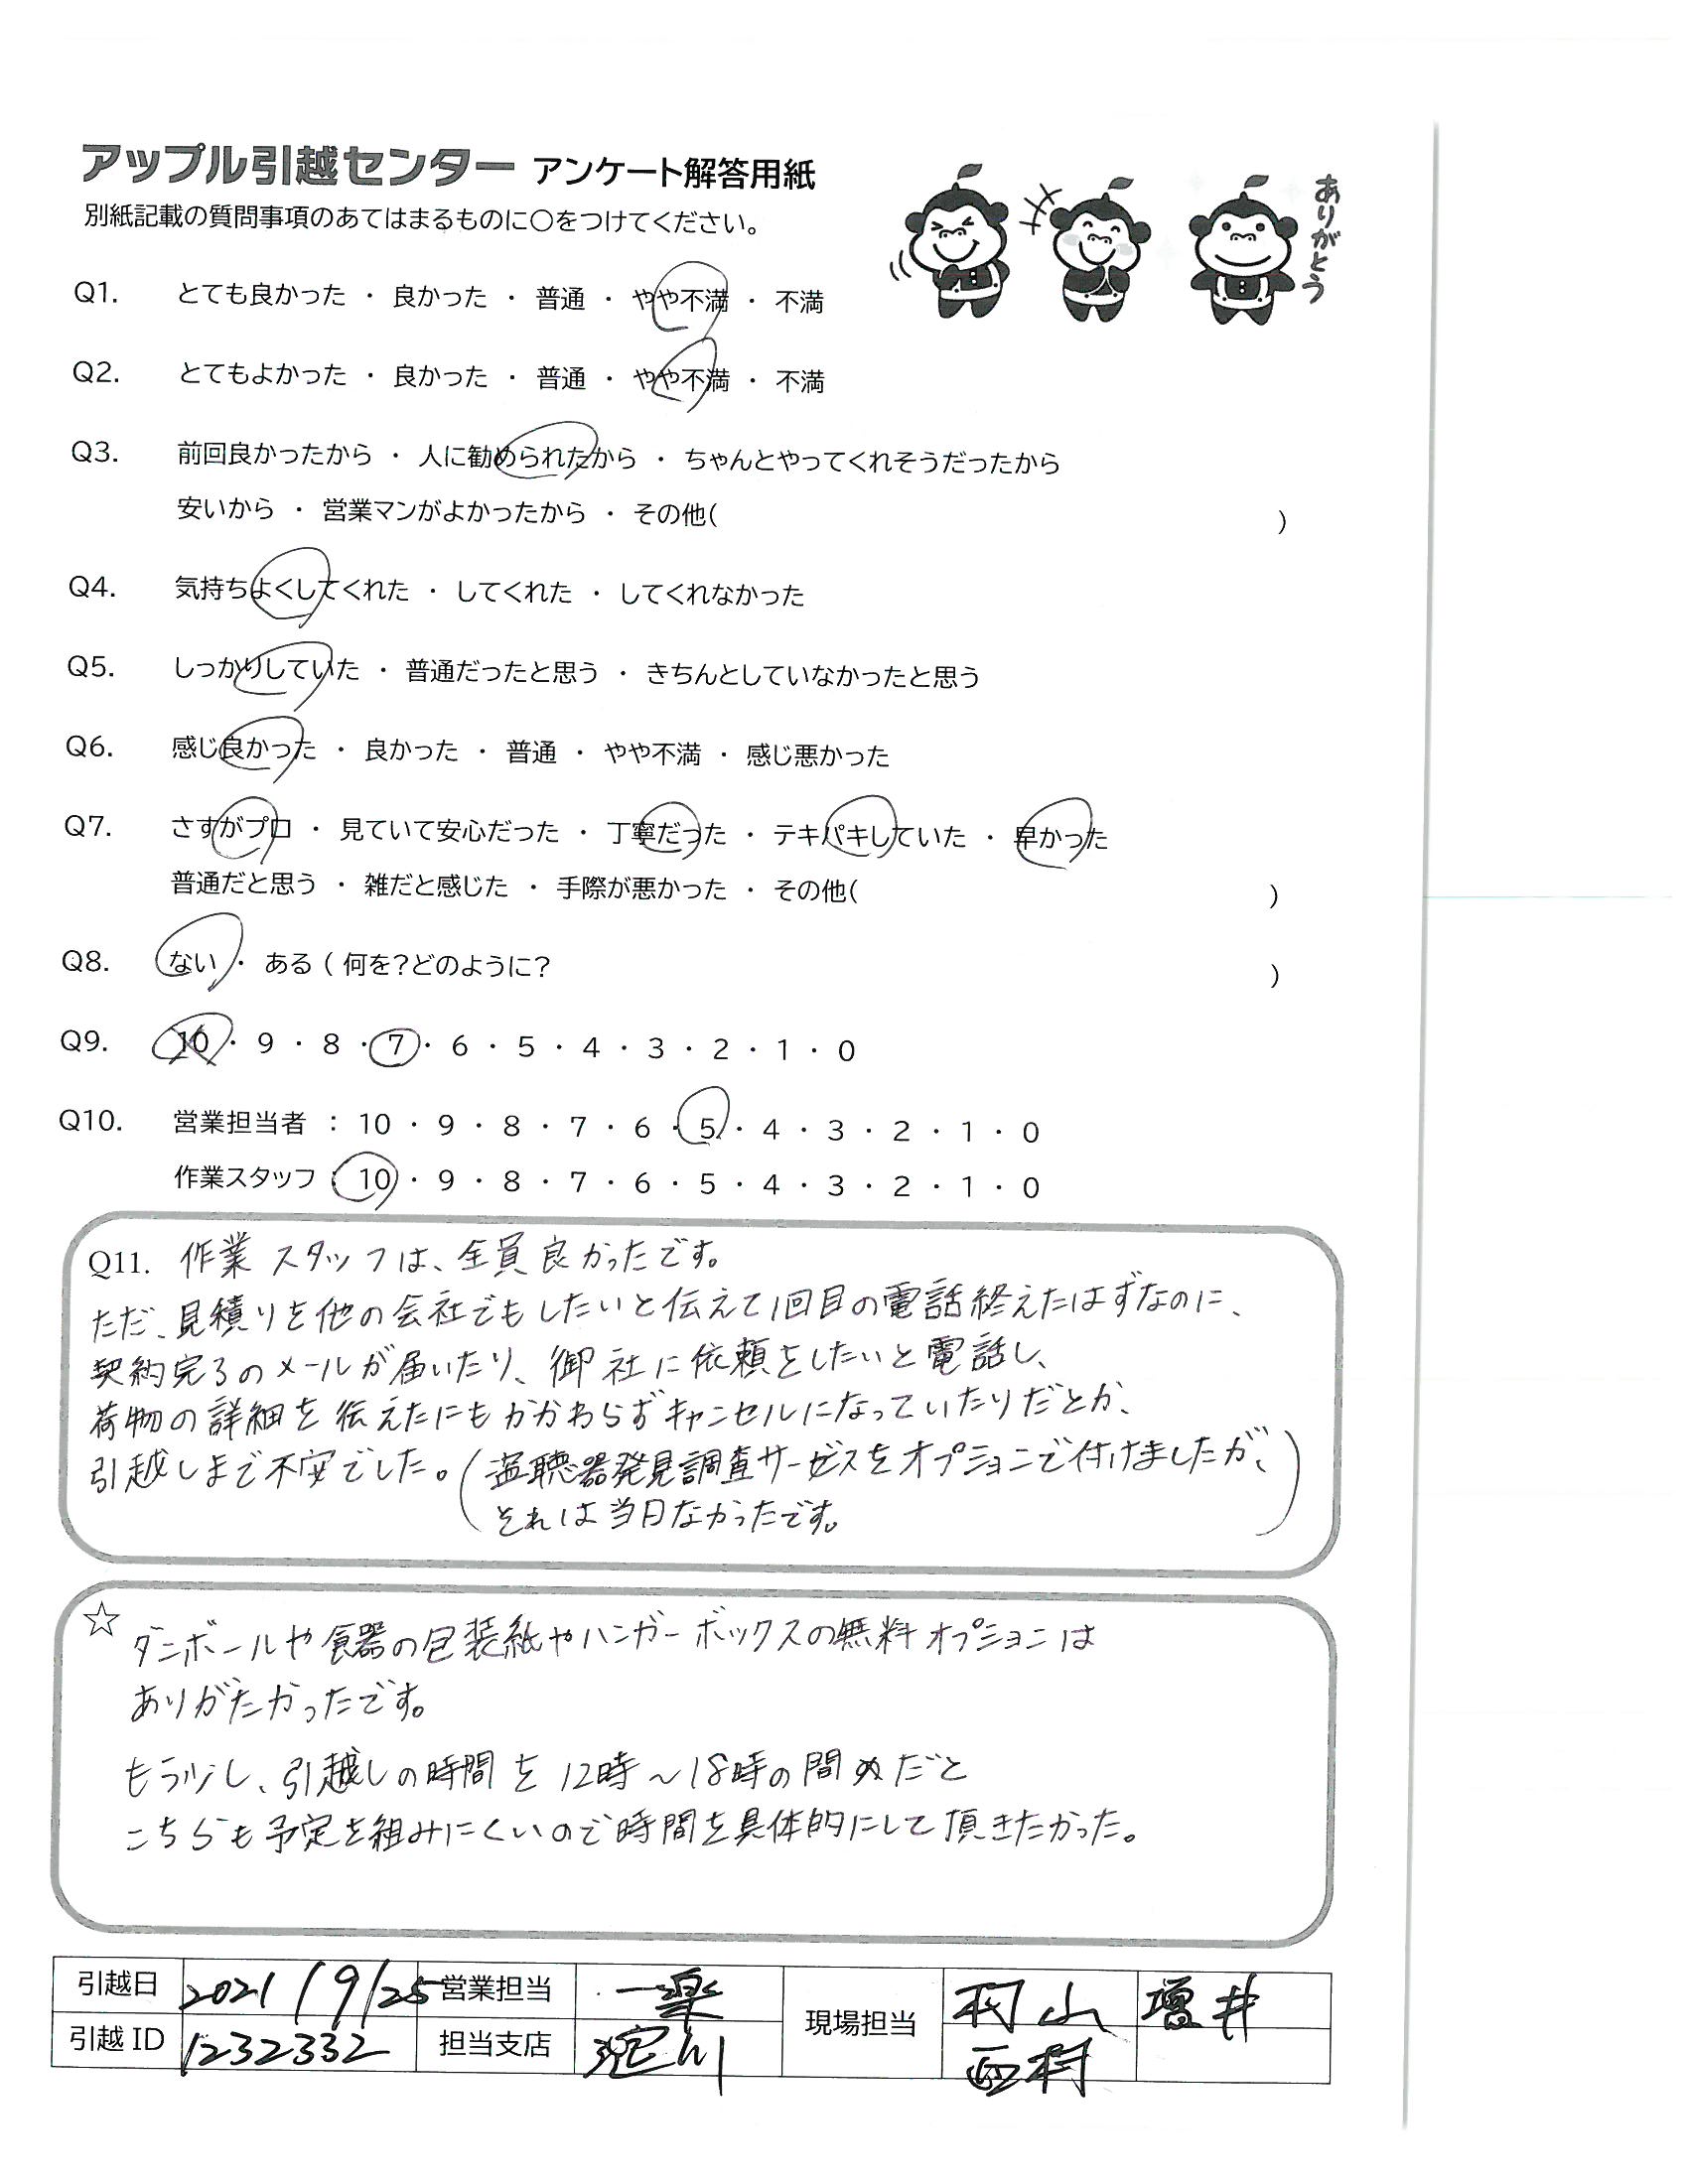 アップル引越センター アンケート解答用紙
別紙記載の質問事項のあてはまるものに○をつけてください。
ありがとう
Q1. とても良かった ・ 良かった ・ 普通 ・ やや不満 ・ 不満
Q2. とてもよかった ・ 良かった ・ 普通 ・ やや不満 ・ 不満
Q3. 前回良かったから ・ 人に勧められたから ・ ちゃんとやってくれそうだったから
安いから ・ 営業マンがよかったから ・ その他( )
Q4. 気持ちよくしてくれた ・ してくれた ・ してくれなかった
Q5. しっかりしていた ・ 普通だったと思う ・ きちんとしていなかったと思う
Q6. 感じ良かった ・ 良かった ・ 普通 ・ やや不満 ・ 感じ悪かった
Q7. さすがプロ ・ 見ていて安心だった ・ 丁寧だった ・ テキパキしていた ・ 早かった
普通だと思う ・ 雑だと感じた ・ 手際が悪かった ・ その他( )
Q8. ない ・ ある ( 何を?どのように? )
Q9. 10 ・ 9 ・ 8 ・ 7 ・ 6 ・ 5 ・ 4 ・ 3 ・ 2 ・ 1 ・ 0
Q10. 営業担当者 : 10 ・ 9 ・ 8 ・ 7 ・ 6 ・ 5 ・ 4 ・ 3 ・ 2 ・ 1 ・ 0
作業スタッフ : 10 ・ 9 ・ 8 ・ 7 ・ 6 ・ 5 ・ 4 ・ 3 ・ 2 ・ 1 ・ 0
Q11. 作業スタッフは、全員良かったです。
ただ、見積りを他の会社でもしたいと伝えて1回目の電話終えたはずなのに、
契約完了のメールが届いたり、御社に依頼をしたいと電話し、
荷物の詳細を伝えたにもかかわらずキャンセルになっていたりだとか、
引越しまで不安でした。(盗聴器発見調査サービスをオプションで付けましたが、
それは当日なかったです。)
☆ ダンボールや食器の包装紙やハンガーボックスの無料オプションは
ありがたかったです。
もう少し、引越しの時間を12時~18時の間だと
こちらも予定を組みにくいので時間を具体的にして頂きたかった。
引越日 2021/9/25 営業担当 一楽 現場担当 村山 増井
引越ID 1232332 担当支店 淀川 西村